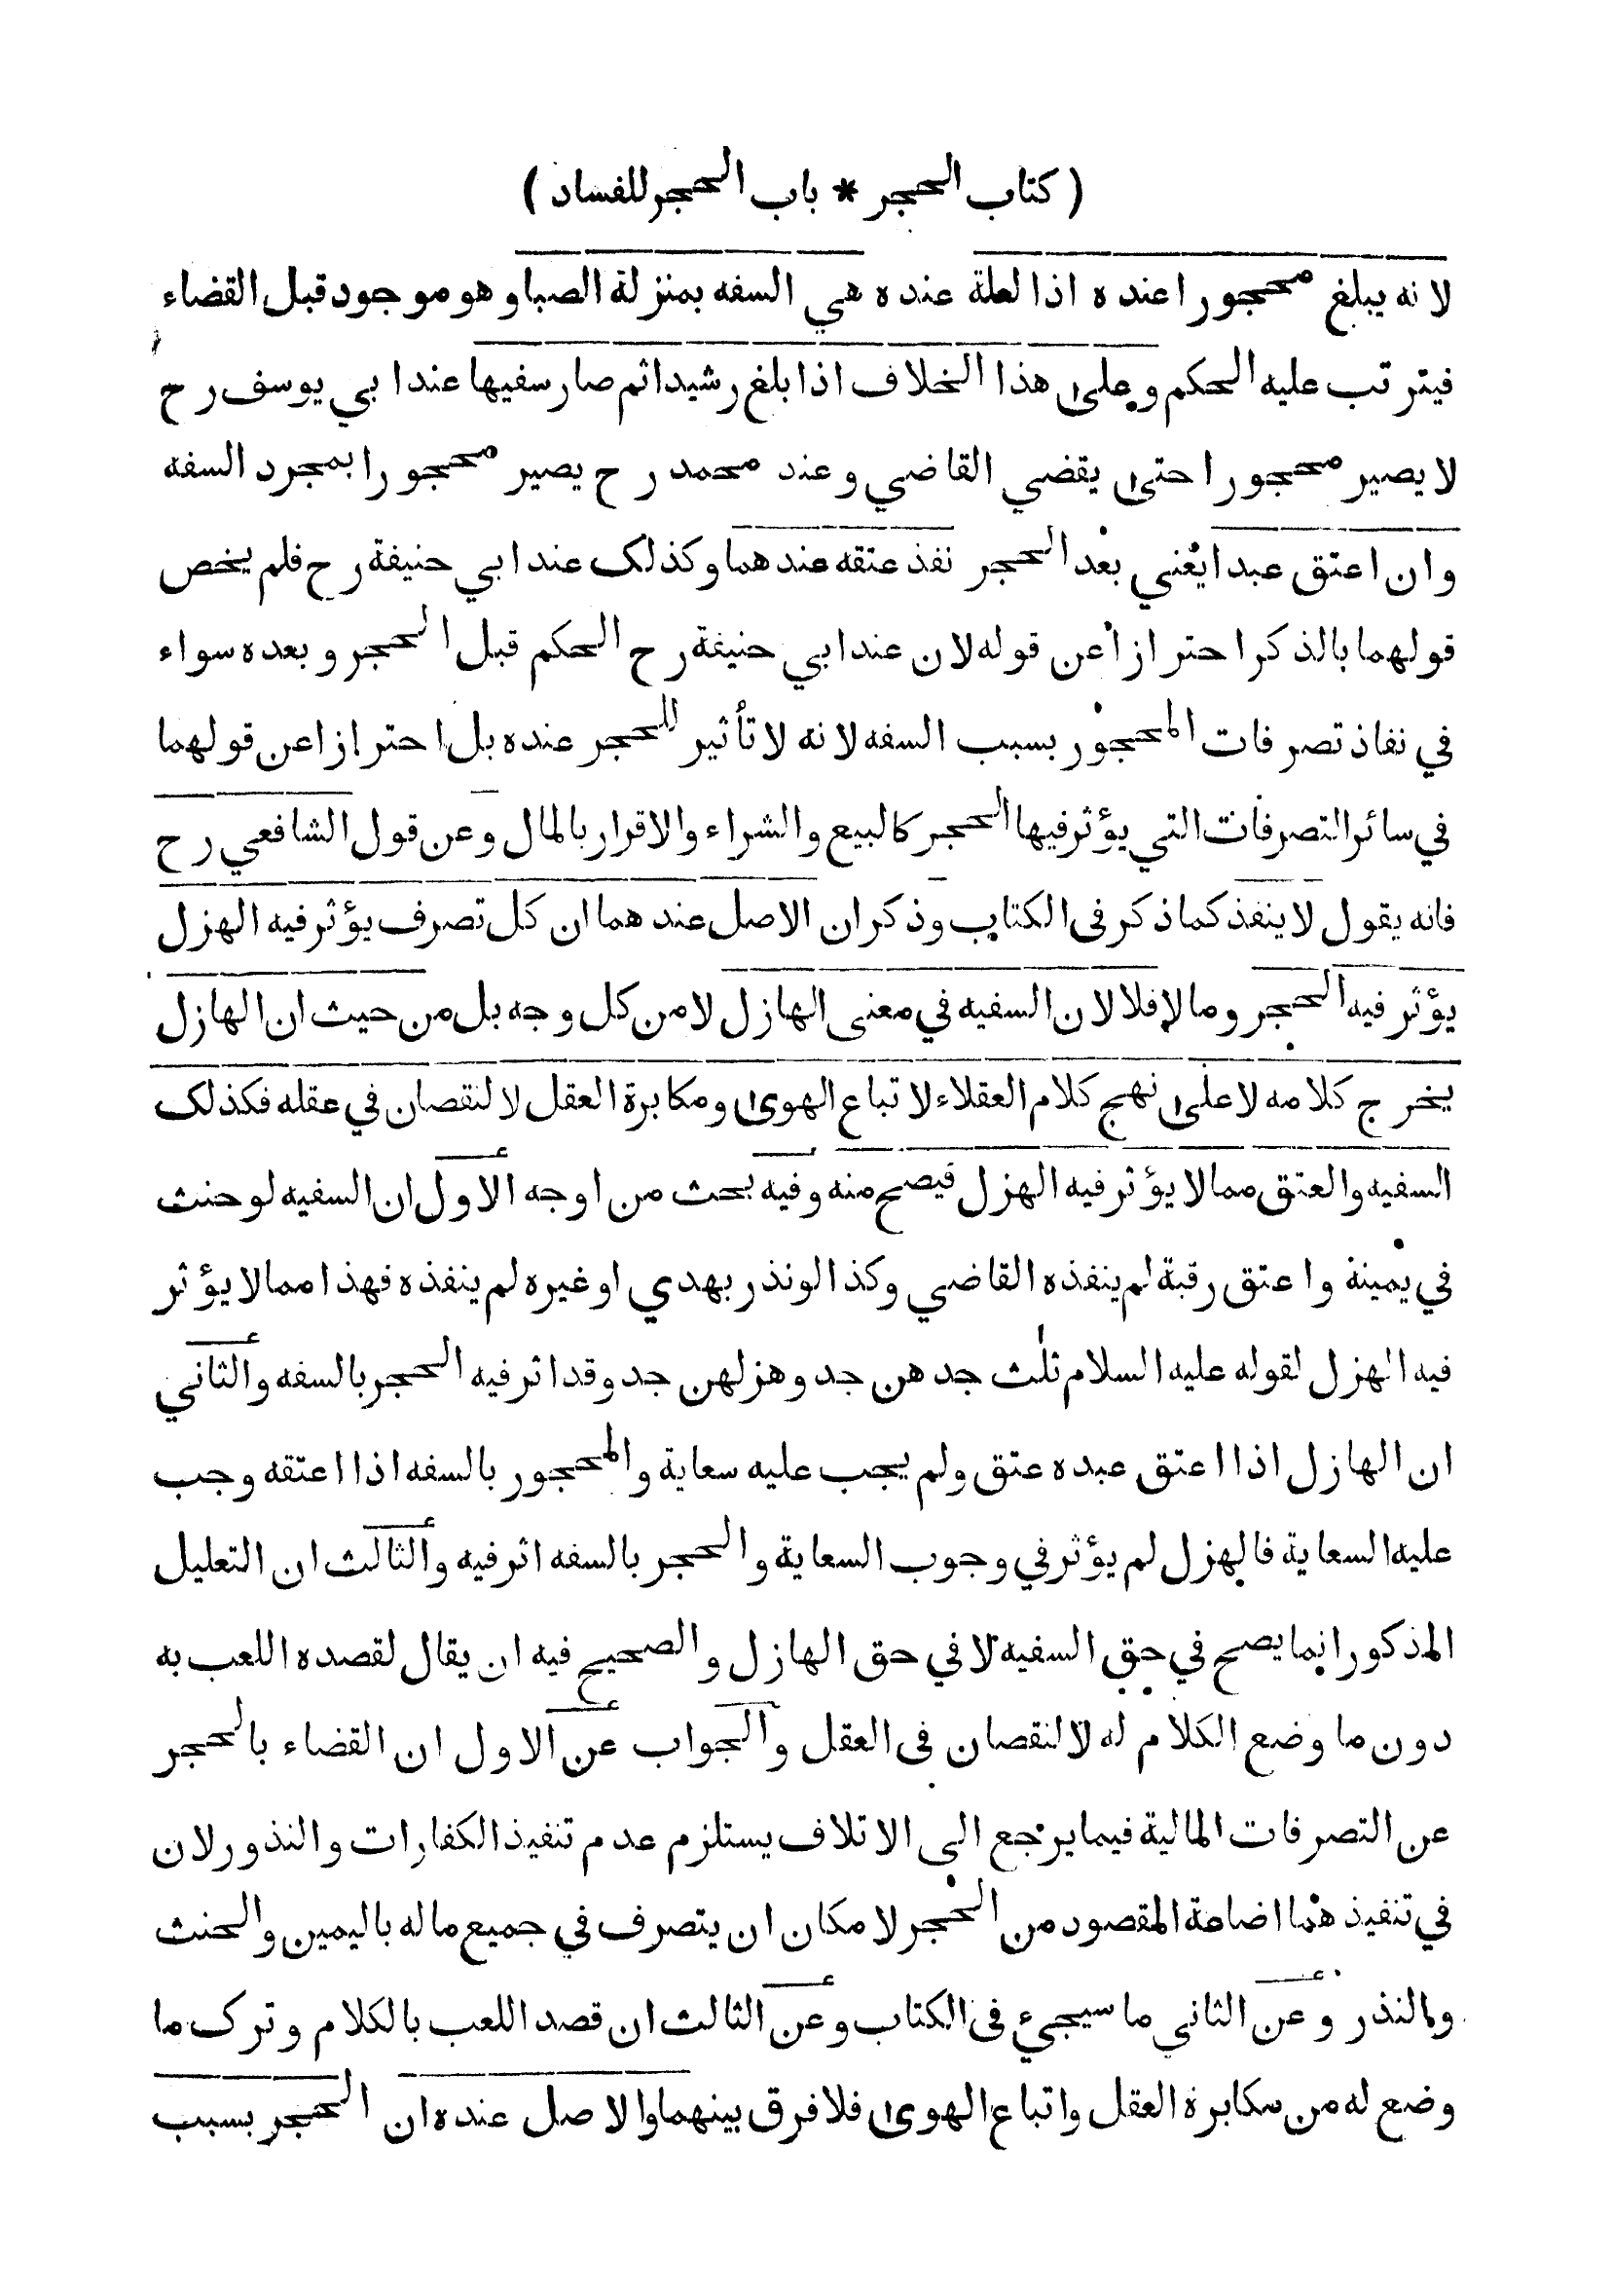 ( كتاب الحجر * باب الحجر للفساد )
لانه يبلغ محجورا عنده اذ العلة عنده هي السفه بمنزلة الصبا وهو موجود قبل القضاء
فيترتب عليه الحكم وعلى هذا الخلاف اذا بلغ رشيدا ثم صار سفيها عند ابي يوسف رح
لا يصير محجورا حتى يقضي القاضي وعند محمد رح يصير محجورا بمجرد السفه
وان اعتق عبدا يعني بعد الحجر نفذ عتقه عندهما وكذلك عند ابي حنيفة رح فلم يخص
قولهما بالذكر احترازا عن قوله لان عند ابي حنيفة رح الحكم قبل الحجر وبعده سواء
في نفاذ تصرفات المحجور بسبب السفه لانه لا تأثير للحجر عنده بل احترازا عن قولهما
في سائر التصرفات التي يؤثر فيها الحجر كالبيع والشراء والاقرار بالمال وعن قول الشافعي رح
فانه يقول لا ينفذ كما ذكر في الكتاب وذكر ان الاصل عندهما ان كل تصرف يؤثر فيه الهزل
يؤثر فيه الحجر وما لا فلا لان السفيه في معنى الهازل لا من كل وجه بل من حيث ان الهازل
يخرج كلامه لا على نهج كلام العقلاء لاتباع الهوى ومكابرة العقل لا لنقصان في عقله فكذلك
السفيه والعتق مما لا يؤثر فيه الهزل فيصح منه وفيه بحث من اوجه الاول ان السفيه لو حنث
في يمينة واعتق رقبة لم ينفذه القاضي وكذا لو نذر بهدي او غيره لم ينفذه فهذا مما لا يؤثر
فيه الهزل لقوله عليه السلام ثلث جدهن جد وهزلهن جد وقد اثر فيه الحجر بالسفه والثاني
ان الهازل اذا اعتق عبده عتق ولم يجب عليه سعاية والمحجور بالسفه اذا اعتقه وجب
عليه السعاية فالهزل لم يؤثر في وجوب السعاية والحجر بالسفه اثر فيه والثالث ان التعليل
المذكور انما يصح في حق السفيه لا في حق الهازل والصحيح فيه ان يقال لقصده اللعب به
دون ما وضع الكلام له لا لنقصان في العقل والجواب عن الاول ان القضاء بالحجر
عن التصرفات المالية فيما يرجع الى الاتلاف يستلزم عدم تنفيذ الكفارات والنذور لان
في تنفيذهما اضاعة المقصود من الحجر لامكان ان يتصرف في جميع ماله باليمين والحنث
والنذر وعن الثاني ما سيجيء في الكتاب وعن الثالث ان قصد اللعب بالكلام وترك ما
وضع له من مكابرة العقل واتباع الهوى فلا فرق بينهما والاصل عنده ان الحجر بسبب